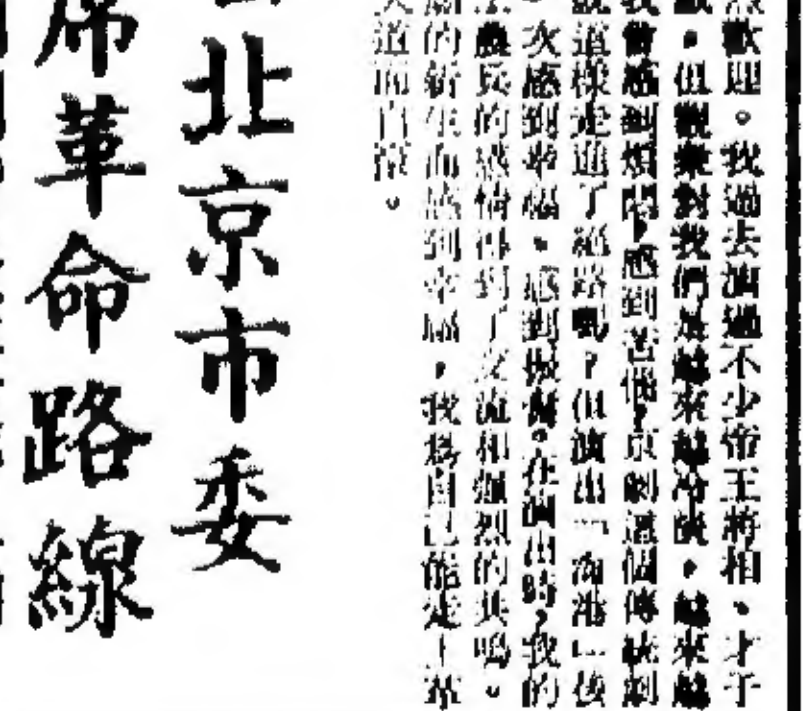 歡迎。我過去演過不少帝王將相、才子
但觀衆對我們是越來越冷淡,越來越
我曾感到煩悶,感到苦惱,京劇這個傳統劇
道樣走進了絕路嗎?但演出「海港」後
次感到幸福,感到振奮。在演出時,我的
農兵的感情得到了交流和強烈的共鳴。
的新生而感到幸福,我爲自己能走上革
道而自豪。
北京市委
席革命路線